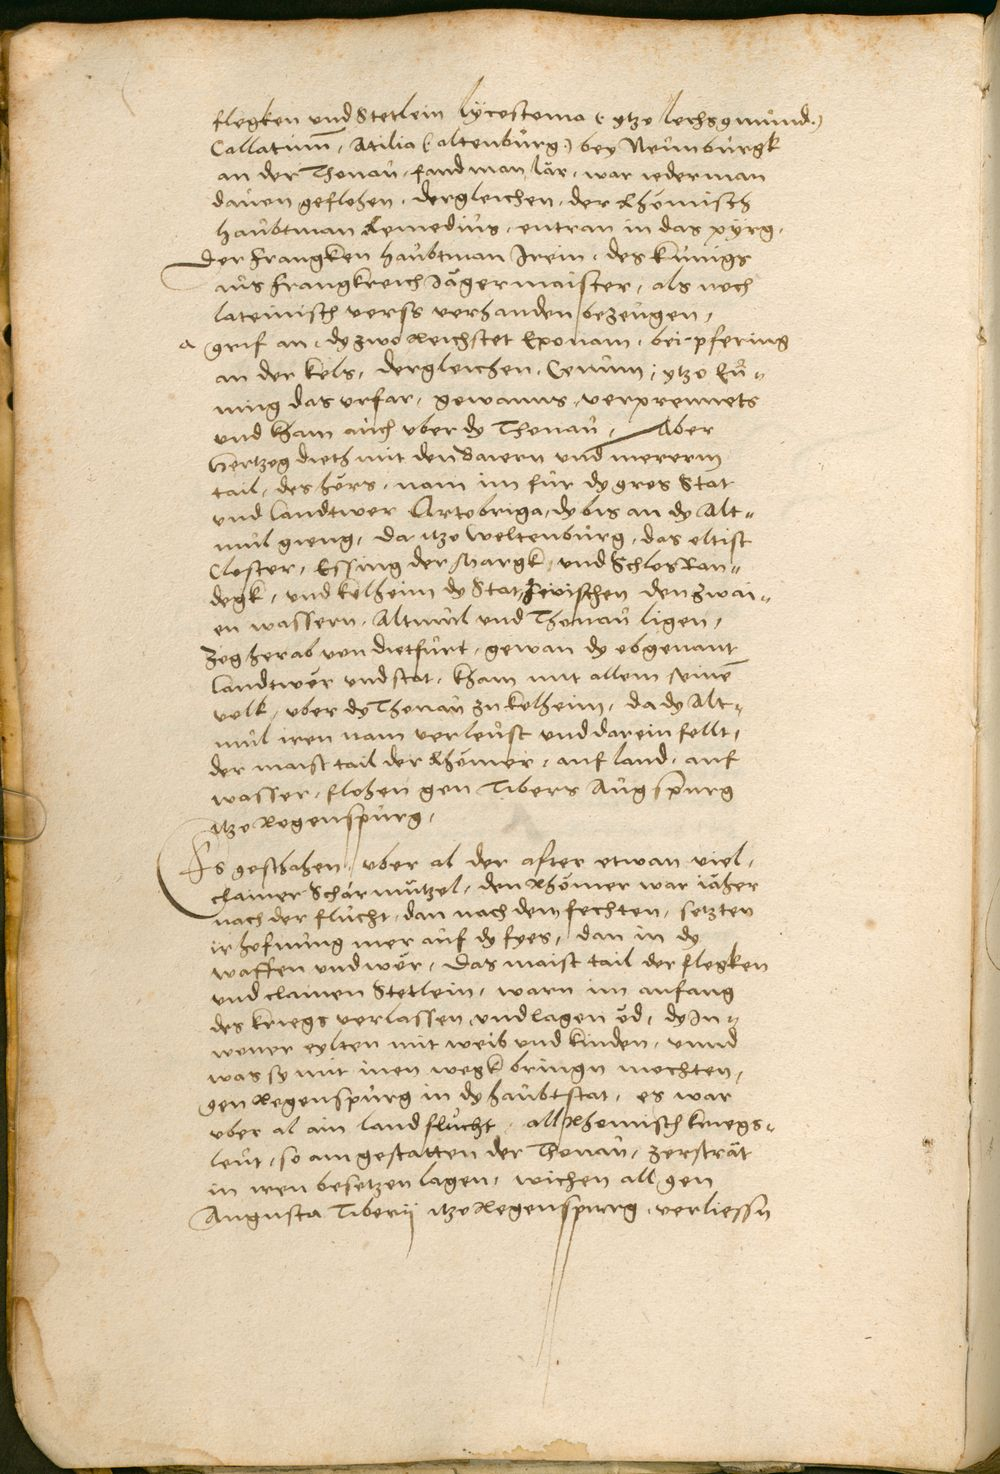 flegken und Stetlein Lÿcostoma (: ytzo lechsgmünd:)
Callatinum, Atilia (: altenburg:) bey Neunburgk
an der Thonau, fand man lär, war iederman
davon geflohen, dergleichen, der Rhömisch
haubtman Remedius, entran in das pÿrg,
Der Frangken haubtman Irein, des künigs
aus Frangkreich Jägermaister, als noch
lateinisch verss verhanden bezeugen,
a grif an, dy zwo Reichstet Eponam, bei pfering
an der kels, dergleichen, Cenum, ytzo
ning das urfar, gewanns, verprennets
und kham auch uber dy Thonau, Aber
hertzog dieth mit den Baiern und mererm
tail, des hörs, nam im für dy gros Stat
und landtwer Artobriga, dy bis an dy Alt-
mül gieng, da itzo Weltenburg, das eltist
Closter, Essing der Margk, und Schlos Ran-
degk, und kelheim dy Stat, zwischen den zwai-
en wassern, Altmül und Thonau ligen,
zog herab von dietfurt, gewan dy obgenant
landtwer und stat, kham mit allem seinem
volk, uber dy Thonau zu kelheim, da dy Alt-
mül iren nam verleust und darein fellt,
der maist tail der Rhömer, auf land, auf
wasser, flohen gen Tibers Augspurg
itzo Regenspurg,
Es geschahen, uber al der after etwan viel,
clainer Scharmützel, den Rhömer war iäher
nach der flucht, dan nach dem fechten, setzten
ir hofnung mer auf dy fyes, dan in dy
waffen und wör, Das maist tail der flegken
und clainen Stetlein, warn im anfang
des kriegs verlassen und lagen öd, dy In-
woner eylten mit weib und kinden, unnd
was sy mit inen wegk bringn mochten,
gen Regenspurg in dy haubtstat, es war
uber al ain land flucht, all Rhomisch kriegs-
leut, so am gestatten der Thonau, zersträt
in iren besetzen lagen, wichen all gen
Augusta Tiberij itzo Regenspurg, verliessn